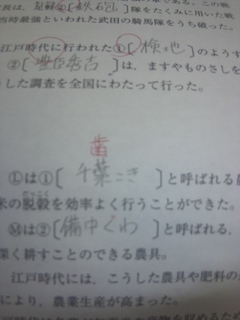 当時最強といわれた武田の騎馬隊をうち破った。
江戸時代に行われた①[検地]のようす
②[豊臣秀吉]は、ますやものさしを
した調査を全国にわたって行った。
歯
Ⓛは①[千葉こき]と呼ばれる
米の脱穀を効率よく行うことができた。
Ⓜは②[備中くわ]と呼ばれる、
深く耕すことのできる農具。
江戸時代には、こうした農具や肥料の
により、農業生産が高まった。